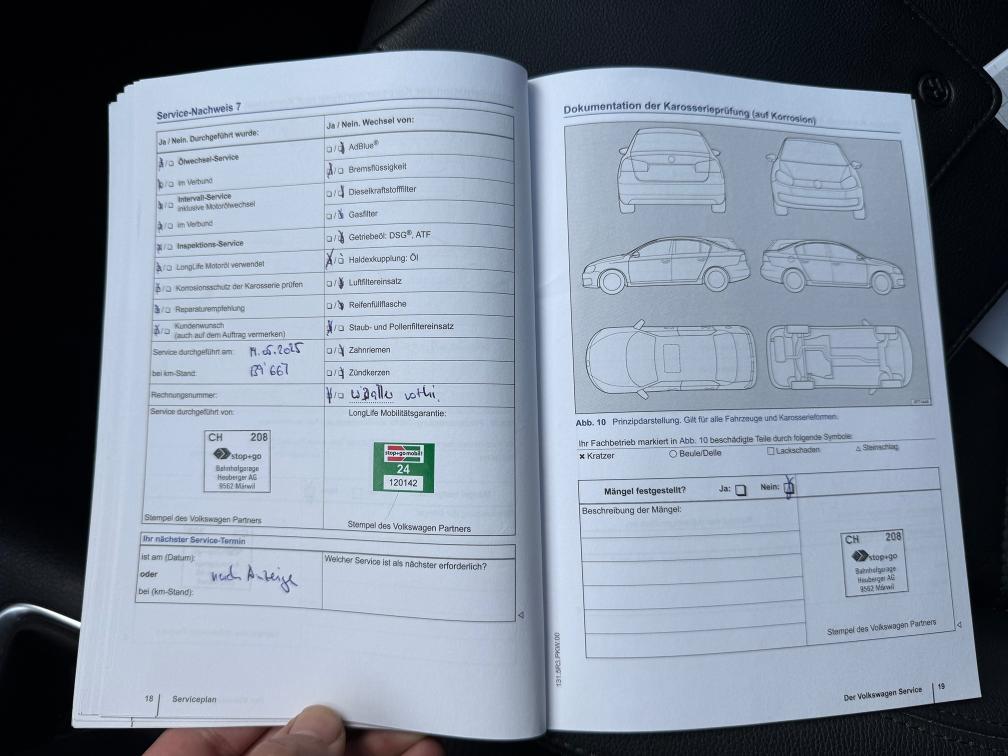 Service-Nachweis 7
Ja / Nein. Durchgeführt wurde:
Ölwechsel-Service
im Verbund
Intervall-Service
inklusive Motorölwechsel
im Verbund
Inspektions-Service
LongLife Motoröl verwendet
Korrosionsschutz der Karosserie prüfen
Reparaturempfehlung
Kundenwunsch
(auch auf dem Auftrag vermerken)
Service durchgeführt am:
.05.2025
bei km-Stand:
139'667
Rechnungsnummer:
Service durchgeführt von:
CH 208
stop+go
Bahnhofgarage
Heuberger AG
9562 Märwil
Stempel des Volkswagen Partners
Ja / Nein. Wechsel von:
AdBlue®
Bremsflüssigkeit
Dieselkraftstofffilter
Gasfilter
Getriebeöl: DSG®, ATF
Haldexkupplung: Öl
Luftfiltereinsatz
Reifenfüllflasche
Staub- und Pollenfiltereinsatz
Zahnriemen
Zündkerzen
LongLife Mobilitätsgarantie:
stop+go mobil!
24
120142
Stempel des Volkswagen Partners
Ihr nächster Service-Termin
ist am (Datum):
oder
nach Anzeige
bei (km-Stand):
Welcher Service ist als nächster erforderlich?
18 Serviceplan
Dokumentation der Karosserieprüfung (auf Korrosion)
Abb. 10 Prinzipdarstellung. Gilt für alle Fahrzeuge und Karosserieformen.
Ihr Fachbetrieb markiert in Abb. 10 beschädigte Teile durch folgende Symbole:
Kratzer Beule/Delle Lackschaden Steinschlag
Mängel festgestellt? Ja: Nein:
Beschreibung der Mängel:
CH 208
stop+go
Bahnhofgarage
Heuberger AG
9562 Märwil
Stempel des Volkswagen Partners
131.5R3.PKW.00
Der Volkswagen Service 19